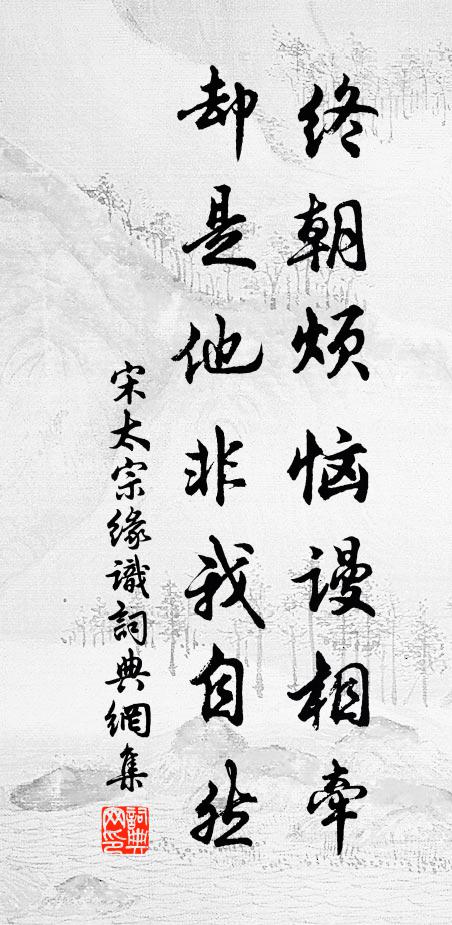 终朝烦恼谩相牵
却是他非我自然
宋太宗緣識詞典網集
詞典网印